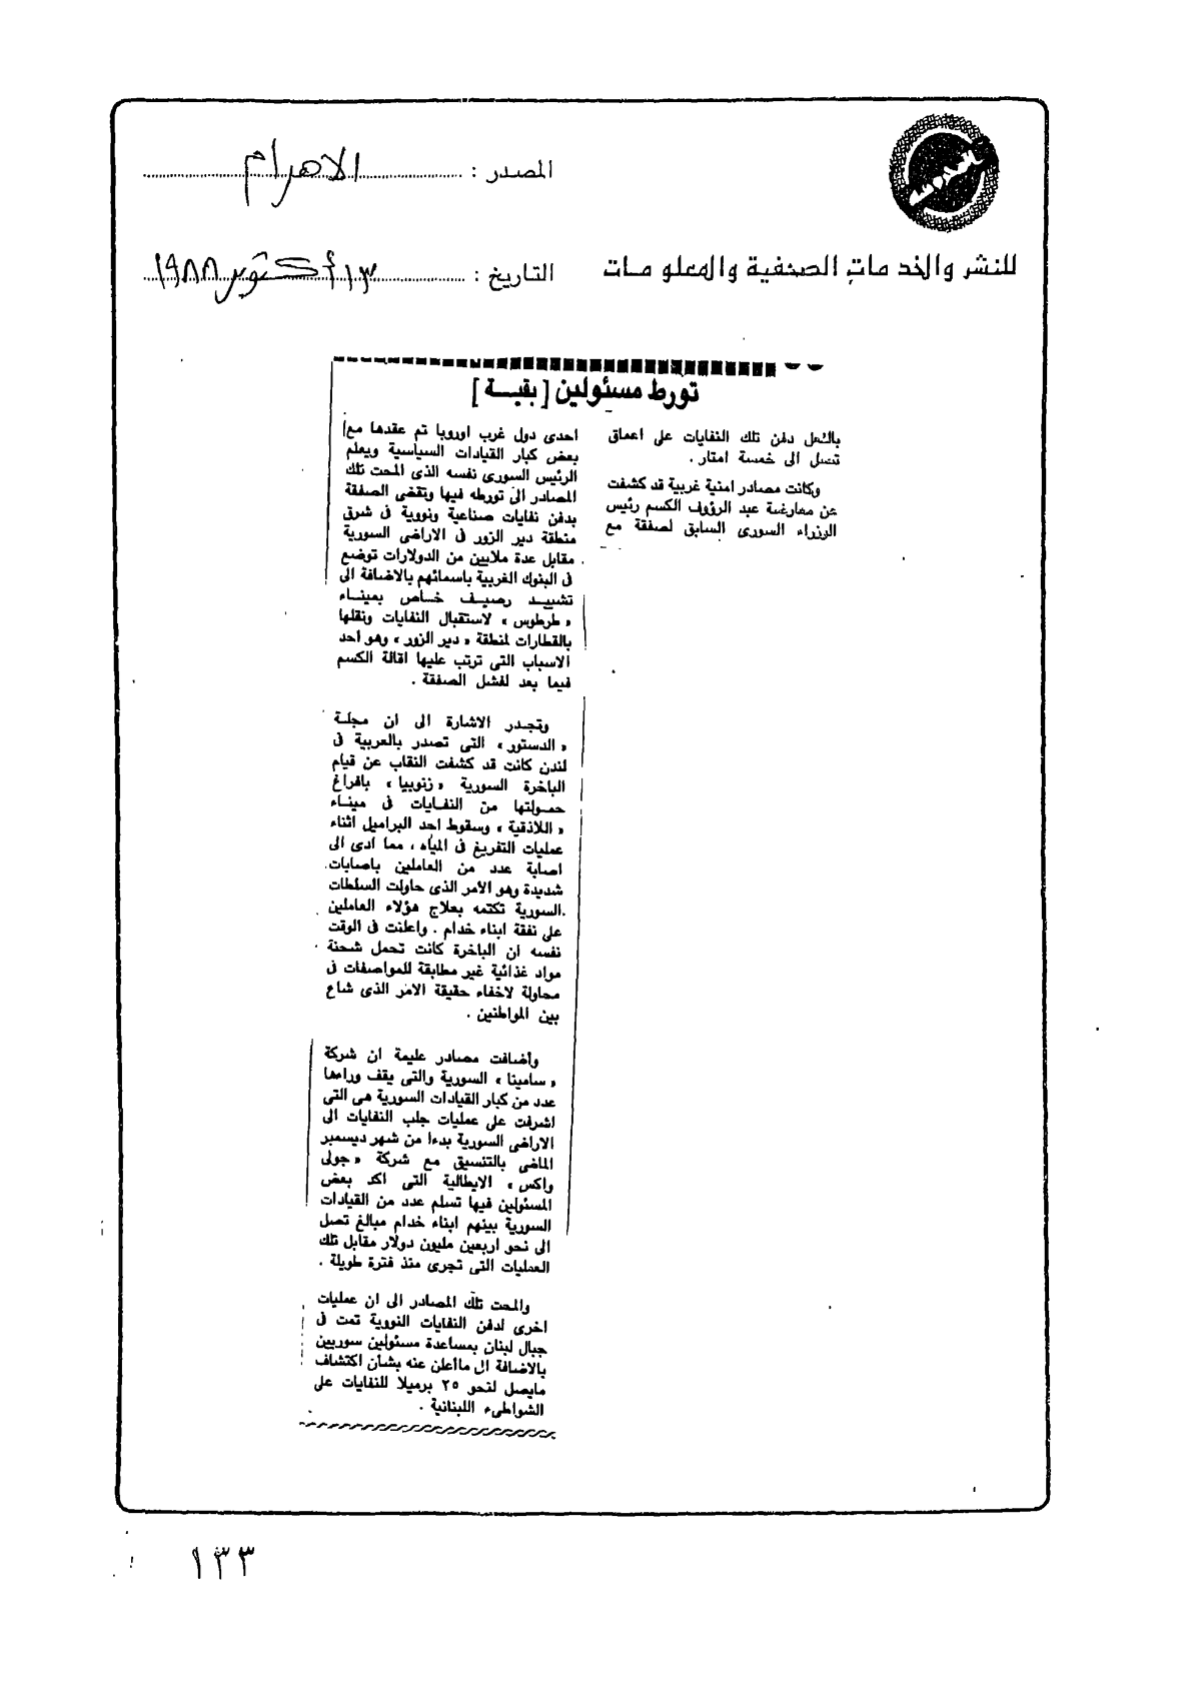 المصدر : الاهرام
للنشر والخدمات الصحفية والمعلومات
التاريخ : ١٣ أكتوبر ١٩٨٨
تورط مسئولين [ بقية ]
بالفعل دفن تلك النفايات على اعماق
تصل الى خمسة امتار .
وكانت مصادر امنية غربية قد كشفت
عن معارضة عبد الرؤوف الكسم رئيس
الوزراء السورى السابق لصفقة مع
احدى دول غرب اوروبا تم عقدها مع
بعض كبار القيادات السياسية ويعلم
الرئيس السورى نفسه الذى المحت تلك
المصادر الى تورطه فيها وتقضى الصفقة
بدفن نفايات صناعية ونووية فى شرق
منطقة دير الزور فى الاراضى السورية
مقابل عدة ملايين من الدولارات توضع
فى البنوك الغربية باسمائهم بالاضافة الى
تشييد رصيف خاص بميناء
« طرطوس » لاستقبال النفايات ونقلها
بالقطارات لمنطقة « دير الزور » وهو احد
الاسباب التى ترتب عليها اقالة الكسم
فيما بعد لفشل الصفقة .
وتجدر الاشارة الى ان مجلة
« الدستور » التى تصدر بالعربية فى
لندن كانت قد كشفت النقاب عن قيام
الباخرة السورية « زنوبيا » بافراغ
حمولتها من النفايات فى ميناء
« اللاذقية » وسقوط احد البراميل اثناء
عمليات التفريغ فى المياه ، مما ادى الى
اصابة عدد من العاملين باصابات
شديدة وهو الامر الذى حاولت السلطات
السورية تكتمه بعلاج هؤلاء العاملين
على نفقة ابناء خدام . واعلنت فى الوقت
نفسه ان الباخرة كانت تحمل شحنة
مواد غذائية غير مطابقة للمواصفات فى
محاولة لاخفاء حقيقة الامر الذى شاع
بين المواطنين .
واضافت مصادر عليمة ان شركة
« سامينا » السورية والتى يقف وراءها
عدد من كبار القيادات السورية هى التى
اشرفت على عمليات جلب النفايات الى
الاراضى السورية بدءا من شهر ديسمبر
الماضى بالتنسيق مع شركة « جولى
واكس » الايطالية التى اكد بعض
المسئولين فيها تسلم عدد من القيادات
السورية بينهم ابناء خدام مبالغ تصل
الى نحو اربعين مليون دولار مقابل تلك
العمليات التى تجرى منذ فترة طويلة .
والمحت تلك المصادر الى ان عمليات
اخرى لدفن النفايات النووية تمت فى
جبال لبنان بمساعدة مسئولين سوريين
بالاضافة ال مااعلن عنه بشأن اكتشاف
مايصل لنحو ٢٥ برميلا للنفايات على
الشواطىء اللبنانية .
١٣٣